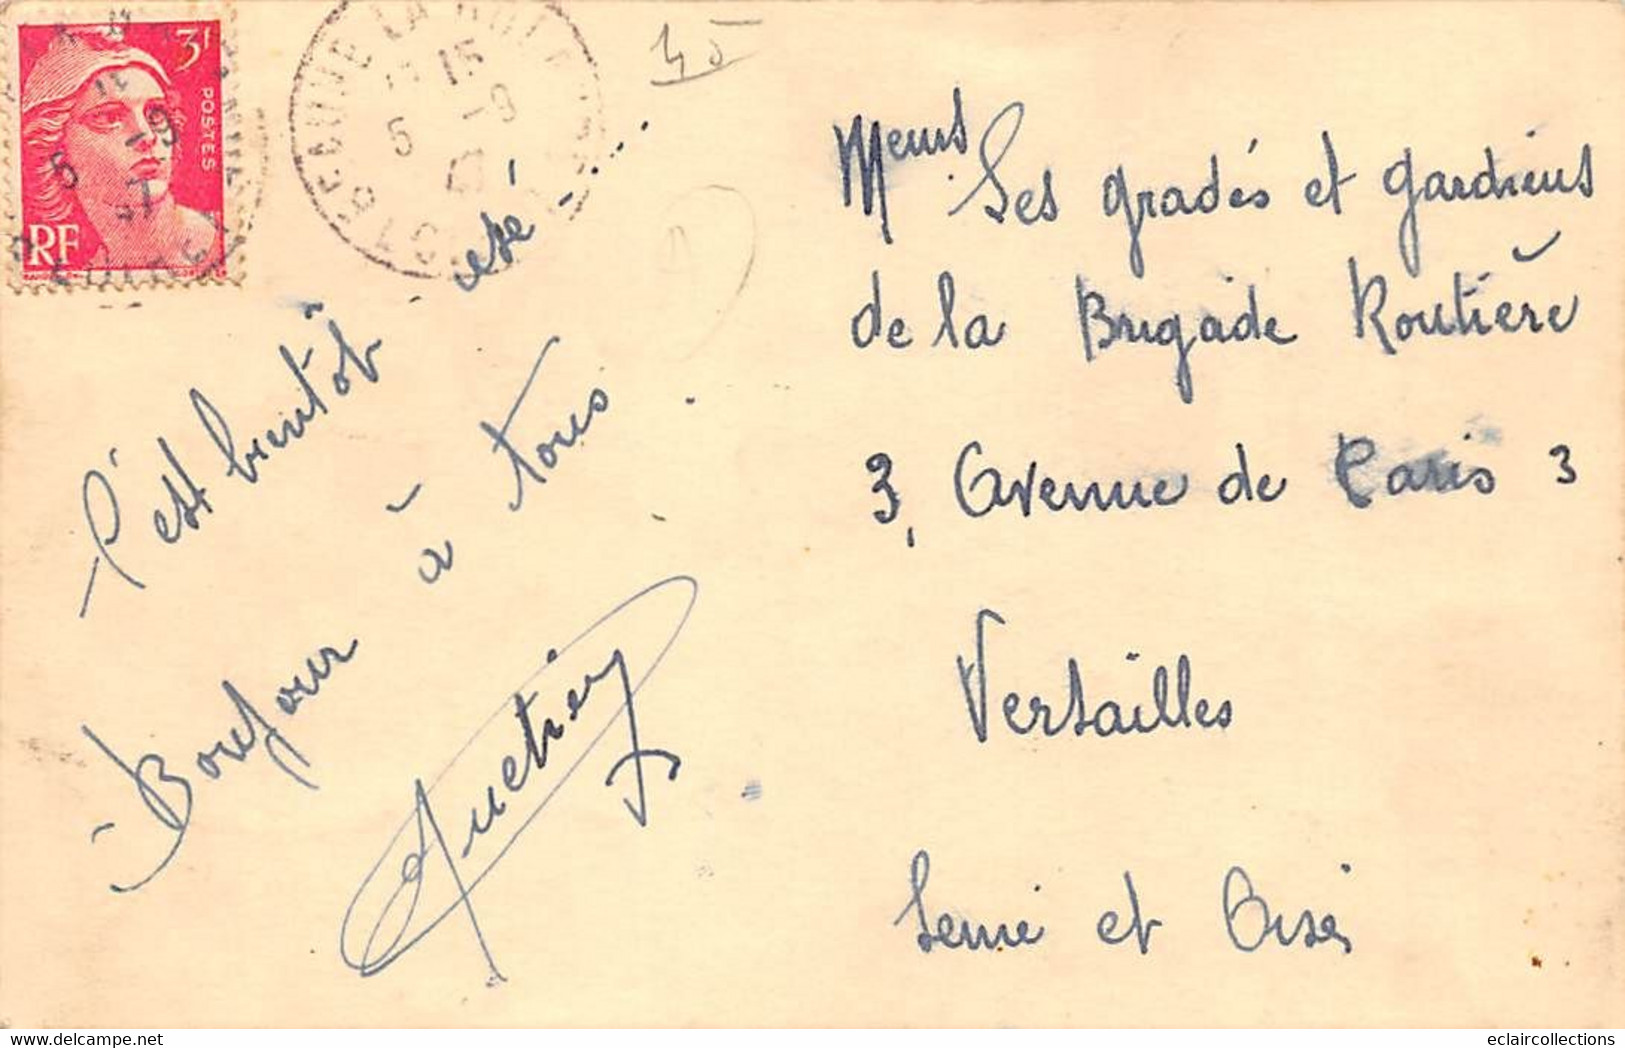 3F
POSTES
RF
15
5 -9
47
LOIRET
45
C'est bientôt
Bonjour à tous
Meurs Les gradés et gardiens
de la Brigade Routière
3, Avenue de Paris 3
Versailles
Seine et Oise
eclaircollections